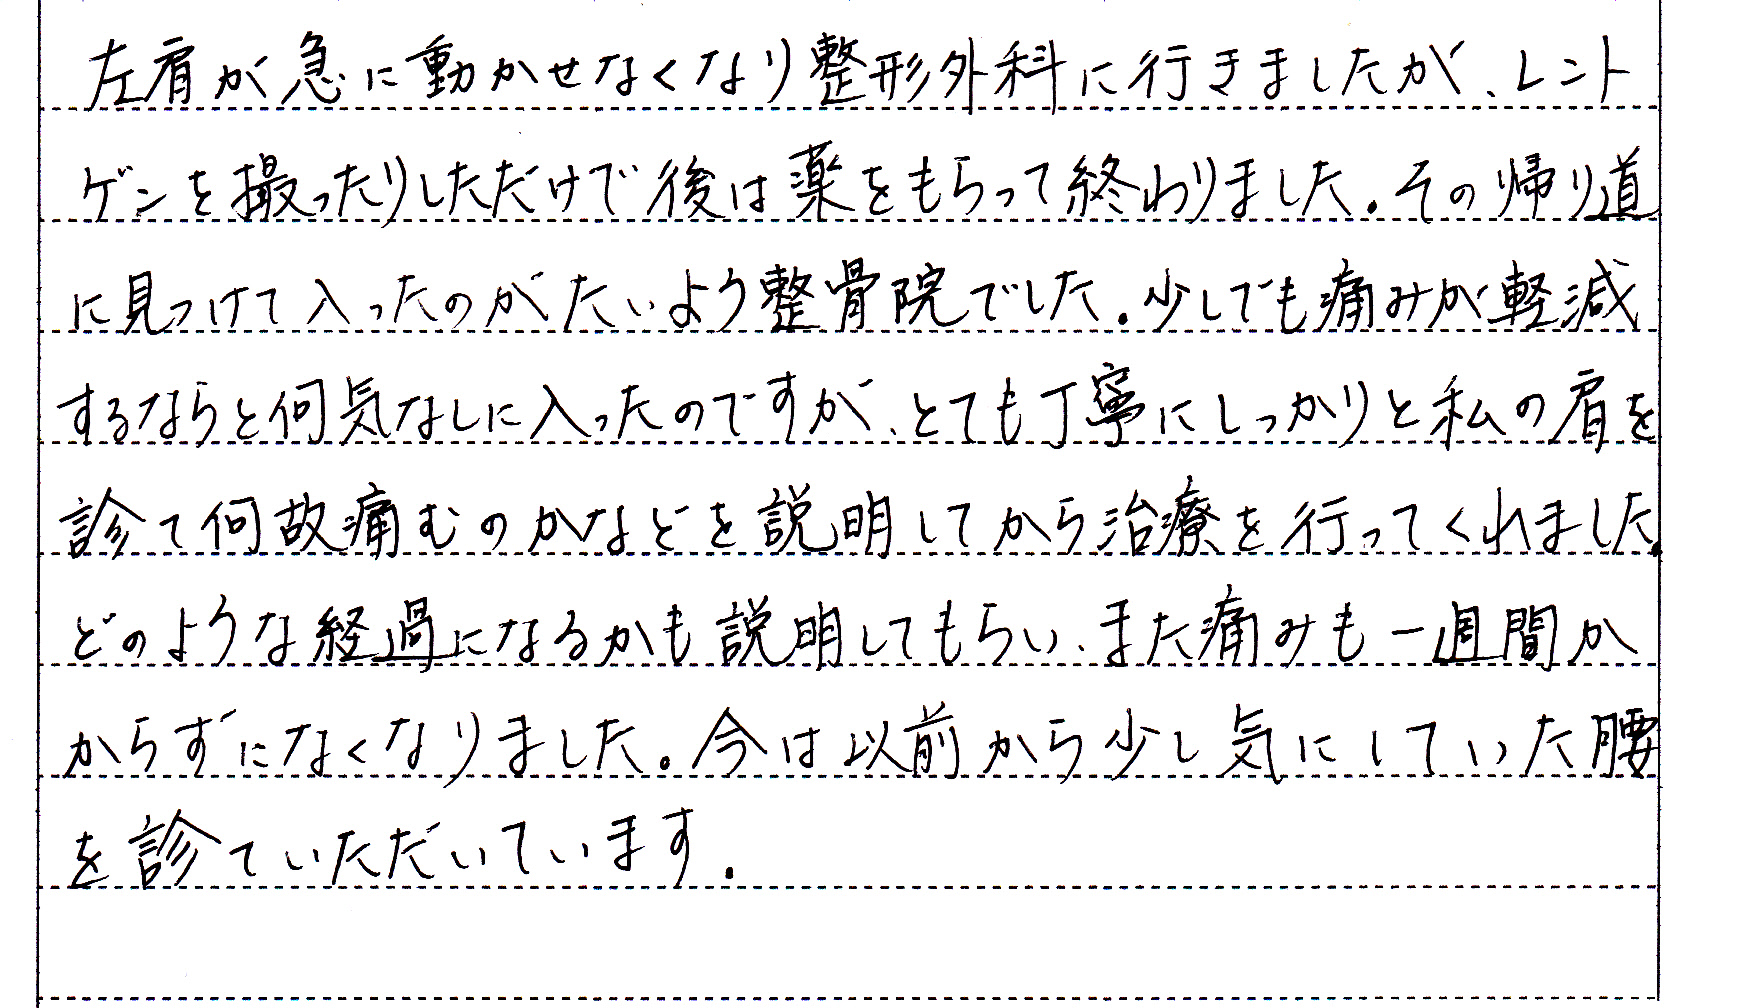 左肩が急に動かせなくなり整形外科に行きましたが、レント
ゲンを撮ったりしただけで後は薬をもらって終わりました。その帰り道
に見つけて入ったのがたいよう整骨院でした。少しでも痛みが軽減
するならと何気なしに入ったのですが、とても丁寧にしっかりと私の肩を
診て何故痛むのかなどを説明してから治療を行ってくれました。
どのような経過になるかも説明してもらい、また痛みも一週間か
からずになくなりました。今は以前から少し気にしていた腰
を診ていただいています。